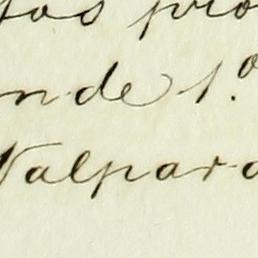 tos pro
nde 1.º
Valpara